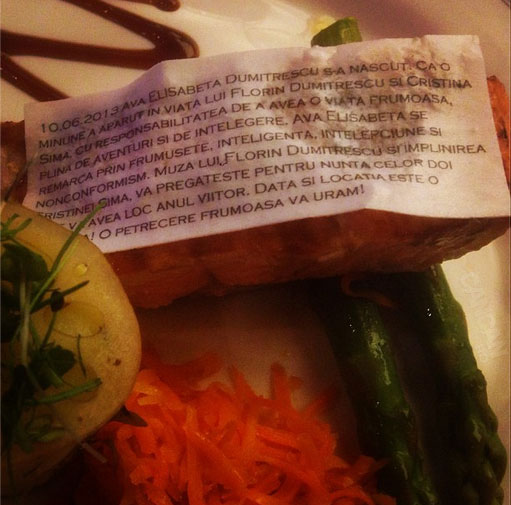 10.06.2013 AVA ELISABETA DUMITRESCU S-A NASCUT. CA O
MINUNE A APARUT IN VIATA LUI FLORIN DUMITRESCU SI CRISTINA
SIMA, CU RESPONSABILITATEA DE A AVEA O VIATA FRUMOASA,
PLINA DE AVENTURI SI DE INTELEGERE. AVA ELISABETA SE
REMARCA PRIN FRUMUSETE, INTELIGENTA, INTELEPCIUNE SI
NONCONFORMISM. MUZA LUI FLORIN DUMITRESCU SI IMPLINIREA
CRISTINEI SIMA, VA PREGATESTE PENTRU NUNTA CELOR DOI
VA AVEA LOC ANUL VIITOR. DATA SI LOCATIA ESTE O
! O PETRECERE FRUMOASA VA URAM!